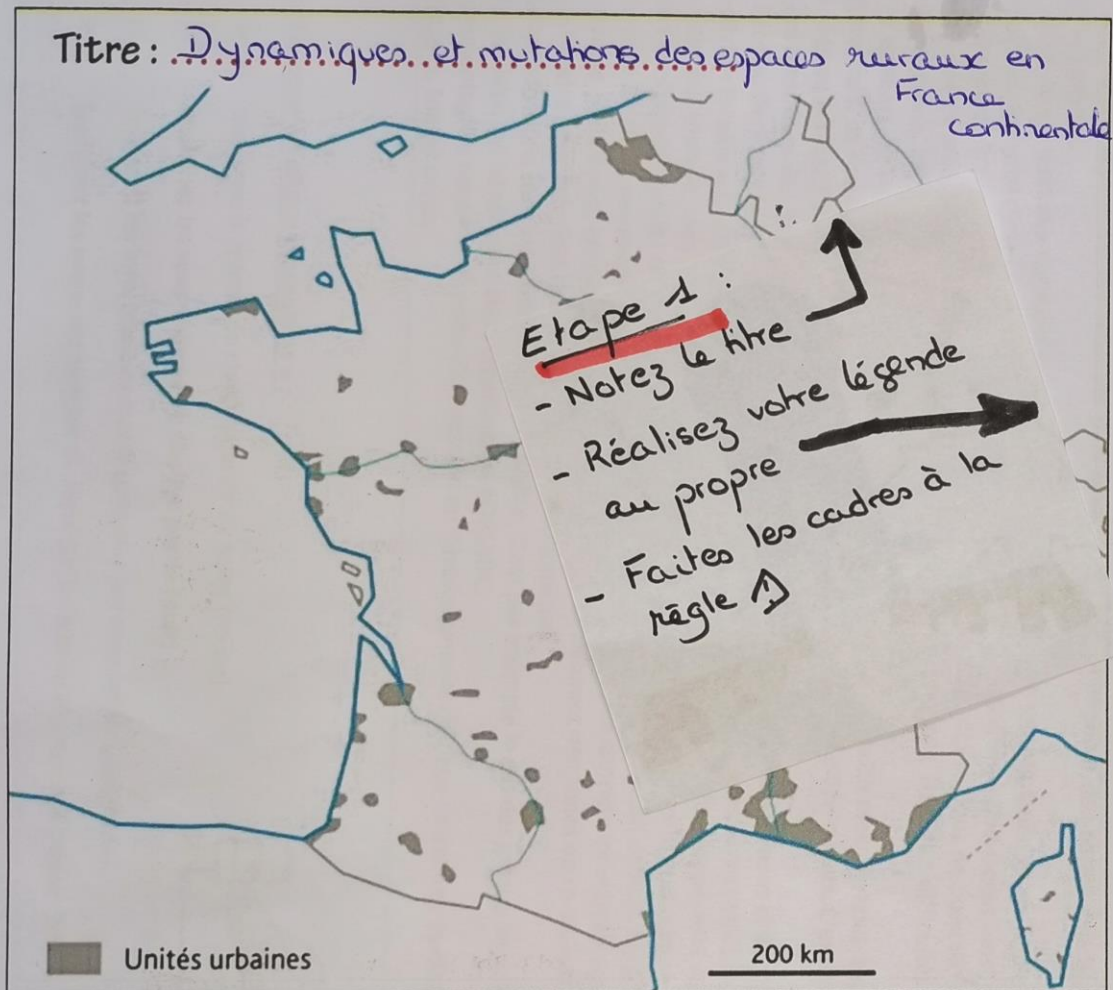 Titre : Dynamiques et mutations des espaces ruraux en
France
continentale
Etape 1 :
- Notez le titre
- Réalisez votre légende
au propre
- Faites les cadres à la
règle
Unités urbaines
200 km